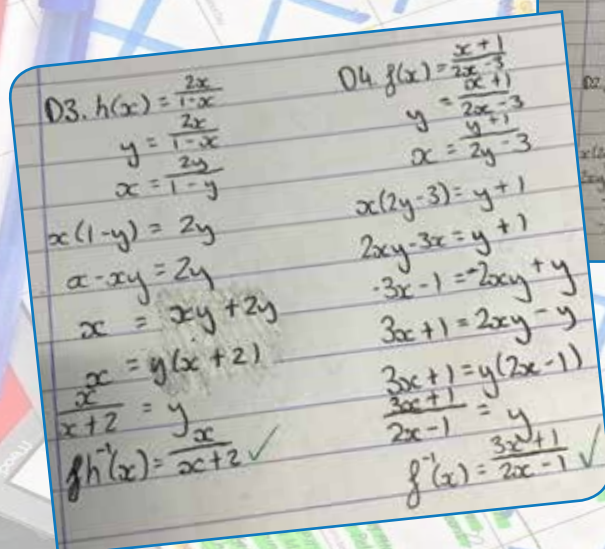 D3. h(x) = 2x/1-x
y = 2x/1-x
x = 2y/1-y
x(1-y) = 2y
x - xy = 2y
x = xy + 2y
x = y(x + 2)
x/x+2 = y
h⁻¹(x) = x/x+2 ✓
D4. f(x) = x+1/2x-3
y = x+1/2x-3
x = y+1/2y-3
x(2y-3) = y+1
2xy-3x = y+1
-3x-1 = -2xy+y
3x+1 = 2xy-y
3x+1 = y(2x-1)
3x+1/2x-1 = y
f⁻¹(x) = 3x+1/2x-1 ✓